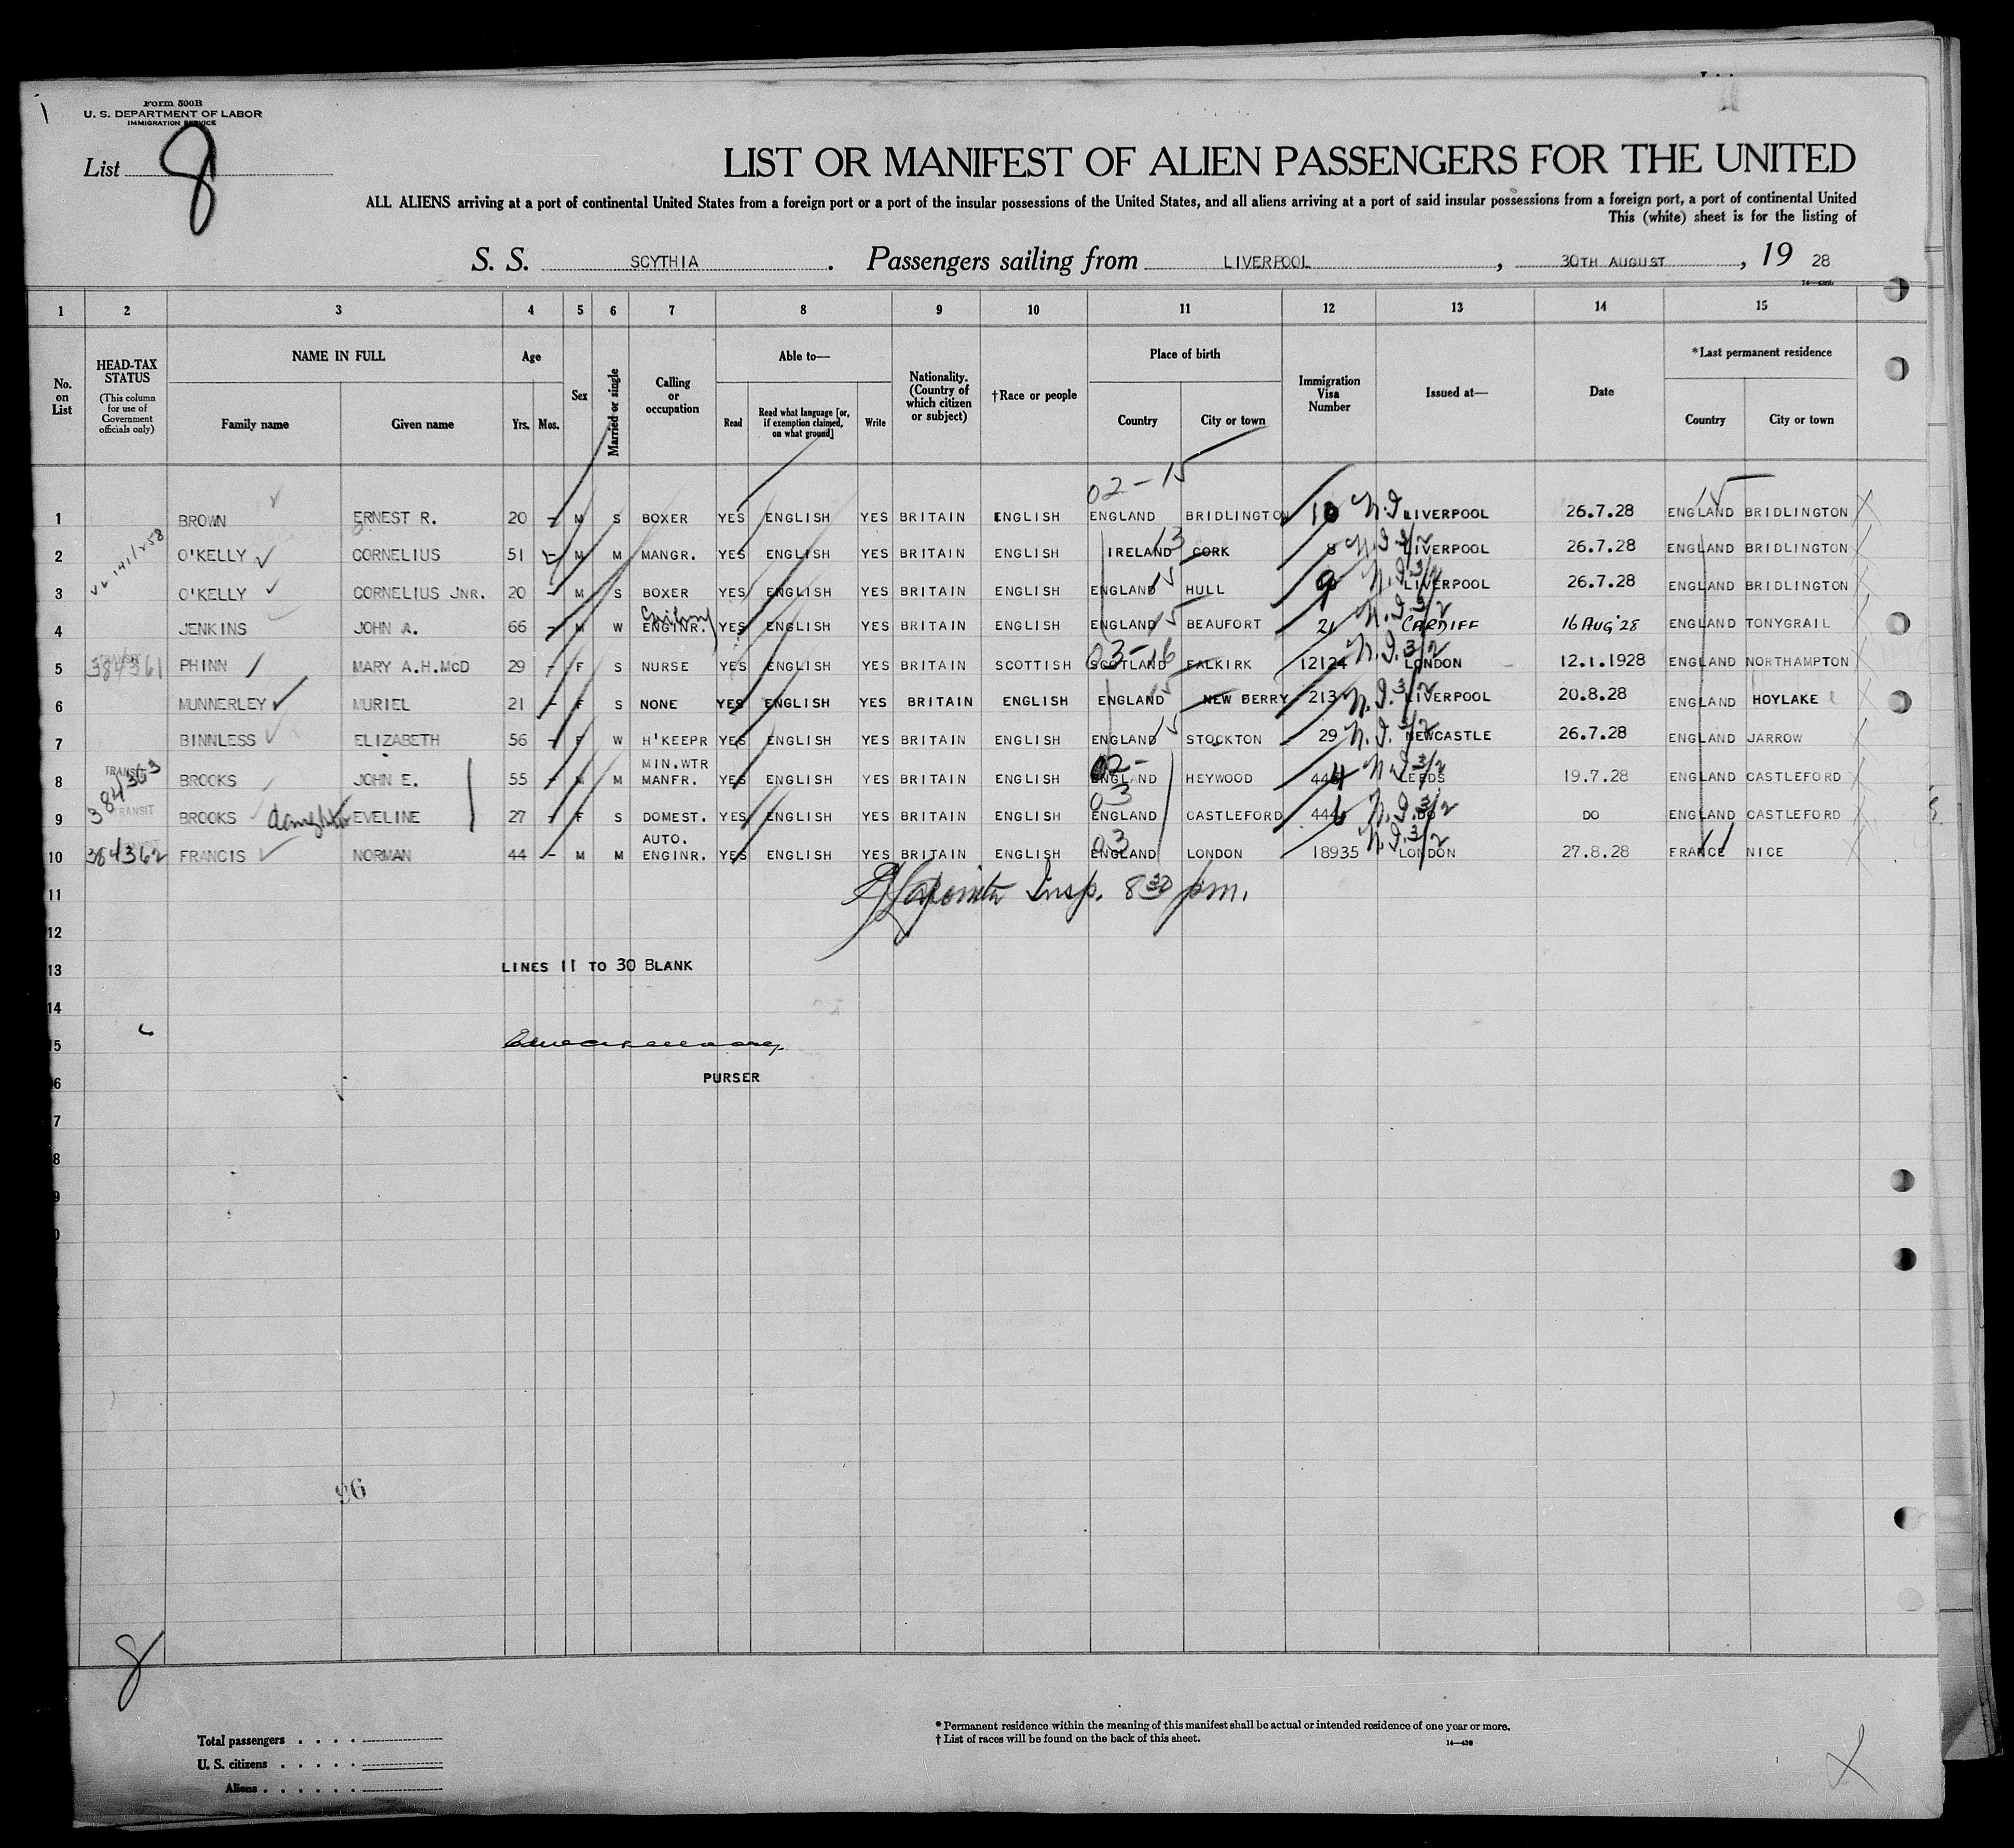 Form 500B
U. S. DEPARTMENT OF LABOR
IMMIGRATION SERVICE
List 8
LIST OR MANIFEST OF ALIEN PASSENGERS FOR THE UNITED
ALL ALIENS arriving at a port of continental United States from a foreign port or a port of the insular possessions of the United States, and all aliens arriving at a port of said insular possessions from a foreign port, a port of continental United
This (white) sheet is for the listing of
S. S. SCYTHIA . Passengers sailing from LIVERPOOL , 30TH AUGUST , 19 28
1 2 3 4 5 6 7 8 9 10 11 12 13 14 15
No. on List
HEAD-TAX STATUS (This column for use of Government officials only)
NAME IN FULL Family name Given name
Age Yrs. Mos.
Sex
Married or single
Calling or occupation
Able to— Read Read what language [or, if exemption claimed, on what ground] Write
Nationality. (Country of which citizen or subject)
†Race or people
Place of birth Country City or town
Immigration Visa Number
Issued at—
Date
*Last permanent residence Country City or town
02-15
1 BROWN ERNEST R. 20 - M S BOXER YES ENGLISH YES BRITAIN ENGLISH ENGLAND BRIDLINGTON 10 N.I. LIVERPOOL 26.7.28 ENGLAND BRIDLINGTON
2 O'KELLY CORNELIUS 51 - M M MANGR. YES ENGLISH YES BRITAIN ENGLISH IRELAND 13 CORK 8 N.I.3/2 LIVERPOOL 26.7.28 ENGLAND BRIDLINGTON
3 O'KELLY CORNELIUS JNR. 20 - M S BOXER YES ENGLISH YES BRITAIN ENGLISH ENGLAND 15 HULL 9 N.I.3/2 LIVERPOOL 26.7.28 ENGLAND BRIDLINGTON
4 JENKINS JOHN A. 66 - M W ENGINR. YES ENGLISH YES BRITAIN ENGLISH ENGLAND 15 BEAUFORT 21 N.I.3/2 CARDIFF 16 AUG '28 ENGLAND TONYGRAIL
03-16
5 384361 TRANSIT PHINN MARY A.H.MCD 29 - F S NURSE YES ENGLISH YES BRITAIN SCOTTISH SCOTLAND FALKIRK 12124 N.I.3/2 LONDON 12.1.1928 ENGLAND NORTHAMPTON
6 MUNNERLEY MURIEL 21 - F S NONE YES ENGLISH YES BRITAIN ENGLISH ENGLAND 15 NEW DERRY 213 N.I.3/2 LIVERPOOL 20.8.28 ENGLAND HOYLAKE
7 BINNLESS ELIZABETH 56 - F W H'KEEPR YES ENGLISH YES BRITAIN ENGLISH ENGLAND 15 STOCKTON 29 N.I.3/2 NEWCASTLE 26.7.28 ENGLAND JARROW
8 TRANSIT 384363 BROOKS JOHN E. 55 - M M MIN.WTR MANFR. YES ENGLISH YES BRITAIN ENGLISH 02- ENGLAND HEYWOOD 444 N.I.3/2 LEEDS 19.7.28 ENGLAND CASTLEFORD
9 TRANSIT BROOKS daughter EVELINE 27 - F S DOMEST. YES ENGLISH YES BRITAIN ENGLISH 03 ENGLAND CASTLEFORD 446 N.I.3/2 DO DO ENGLAND CASTLEFORD
10 384362 FRANCIS NORMAN 44 - M M AUTO. ENGINR. YES ENGLISH YES BRITAIN ENGLISH 03 ENGLAND LONDON 18935 N.I.3/2 LONDON 27.8.28 FRANCE NICE
11 Insp. 8 30 pm.
12
13 LINES 11 TO 30 BLANK
14
5
6 PURSER
7
8
9
0
96
8
Total passengers
U. S. citizens
Aliens
* Permanent residence within the meaning of this manifest shall be actual or intended residence of one year or more.
† List of races will be found on the back of this sheet.